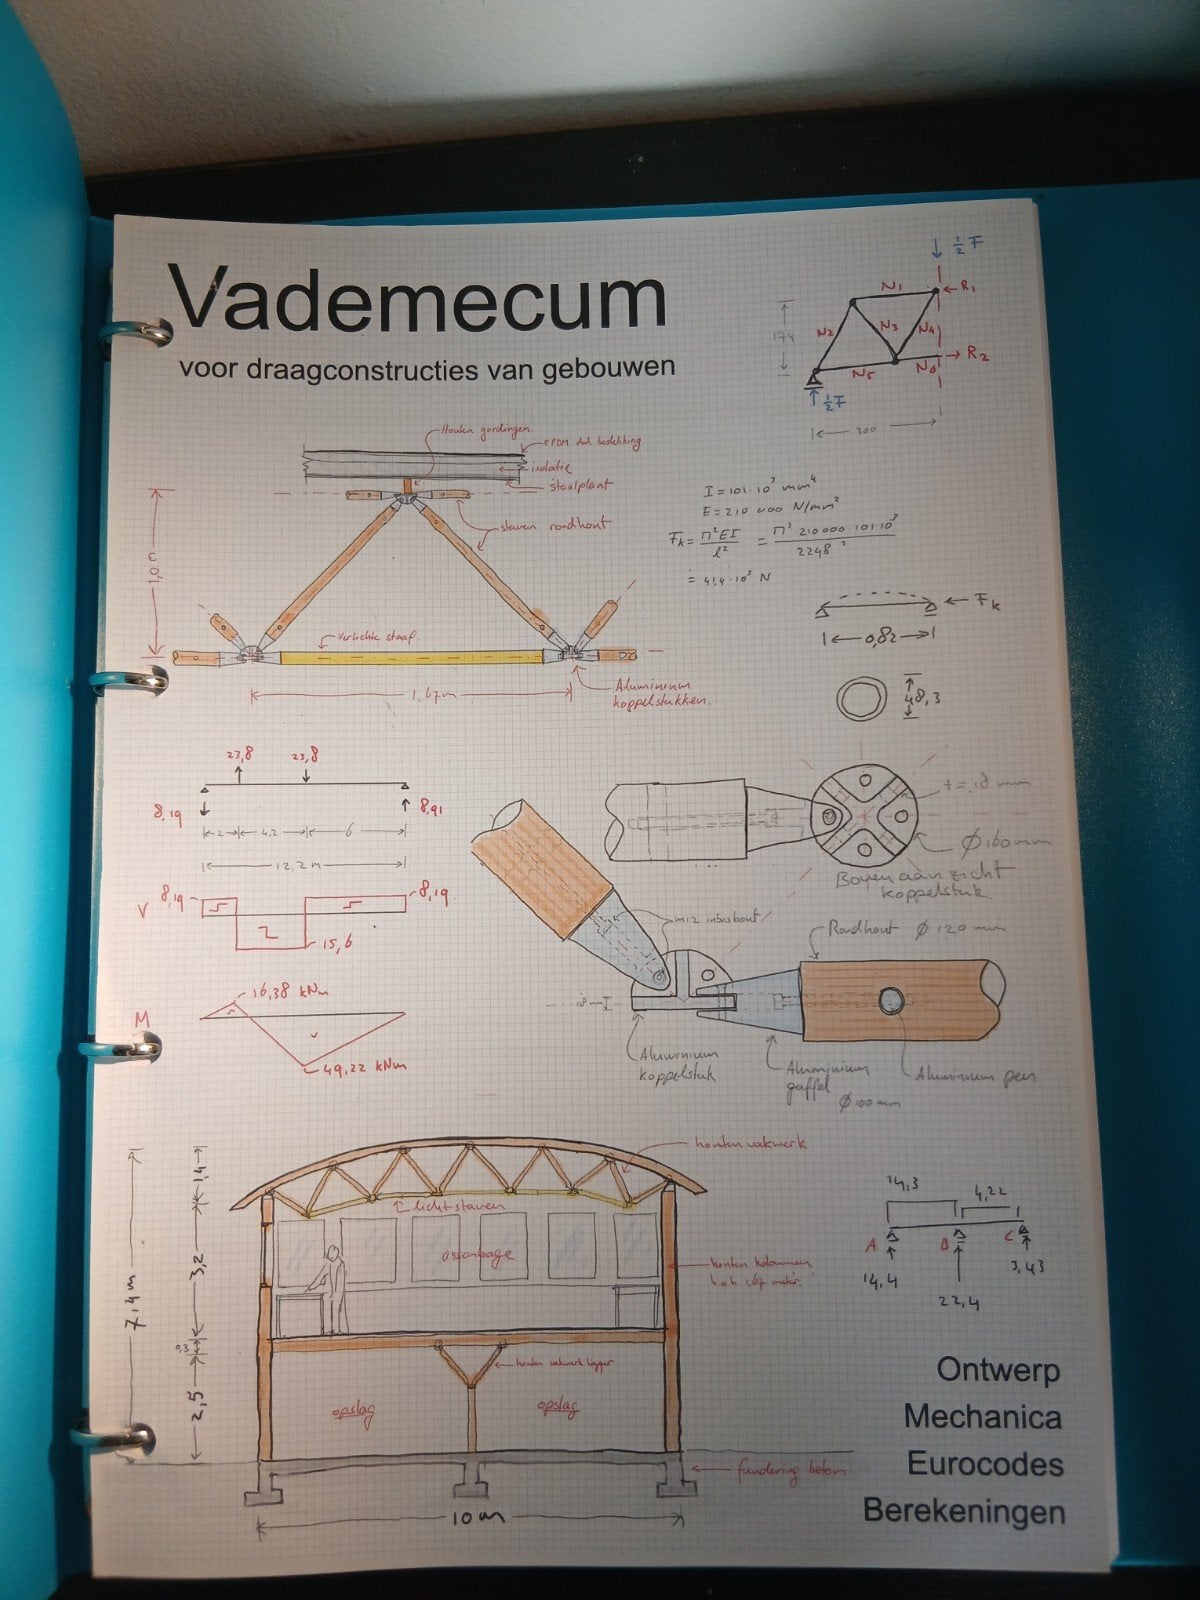 Vademecum
voor draagconstructies van gebouwen
½F
N1
R1
N2
N3
N4
174
R2
N5
N6
½F
300
Houten gordingen
EPDM dak bedekking
isolatie
staalplaat
staven rondhout
1,0
Verlichte staaf.
1,67m
Aluminium
koppelstukken.
I = 101·10³ mm⁴
E = 210 000 N/mm²
Fk = π²EI / l² = π²·210000·101·10³ / 2248²
= 41,4·10³ N
Fk
0,82
48,3
23,8
23,8
8,19
8,91
2
4,2
6
12,2 m
V
8,19
8,19
15,6
M
16,38 kNm
49,22 kNm
t = 18 mm
Ø160mm
Boven aanzicht
koppelstuk
M12 inbusbout
Rondhout Ø 120 mm
18
Aluminium
koppelstuk
Aluminium
gaffel
Ø100 mm
Aluminium pen
houten vakwerk
lichtstaven
1,4
3,2
7,4 m
0,3
2,5
houten kolommen
h.o.h 1,67 meter.
houten vakwerk ligger
opslag
opslag
fundering beton
10m
14,3
4,22
A
B
C
14,4
22,4
3,43
Ontwerp
Mechanica
Eurocodes
Berekeningen